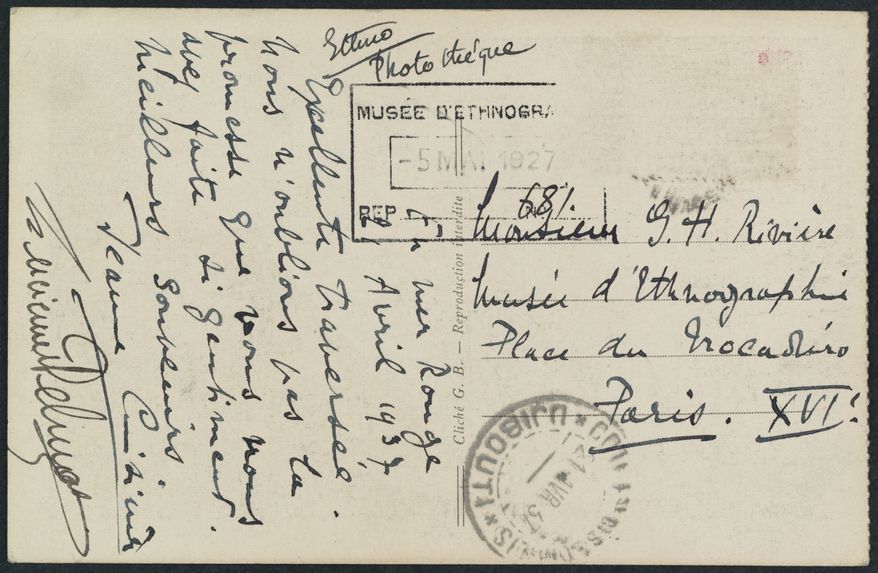 Ethno
Photothèque
MUSÉE D'ETHNOGRA
-5 MAI 1927
REP
681
en mer Rouge
21 Avril 1937
Excellente traversée.
Nous n'oublions pas la
promesse que vous nous
avez faite si gentiment.
Meilleurs souvenirs.
Jeanne
Monsieur G. H. Rivière
Musée d'Ethnographie
Place du Trocadéro
Paris. XVIe
Cliché G. B. — Reproduction interdite
DJIBOUTI
21 AVR 37